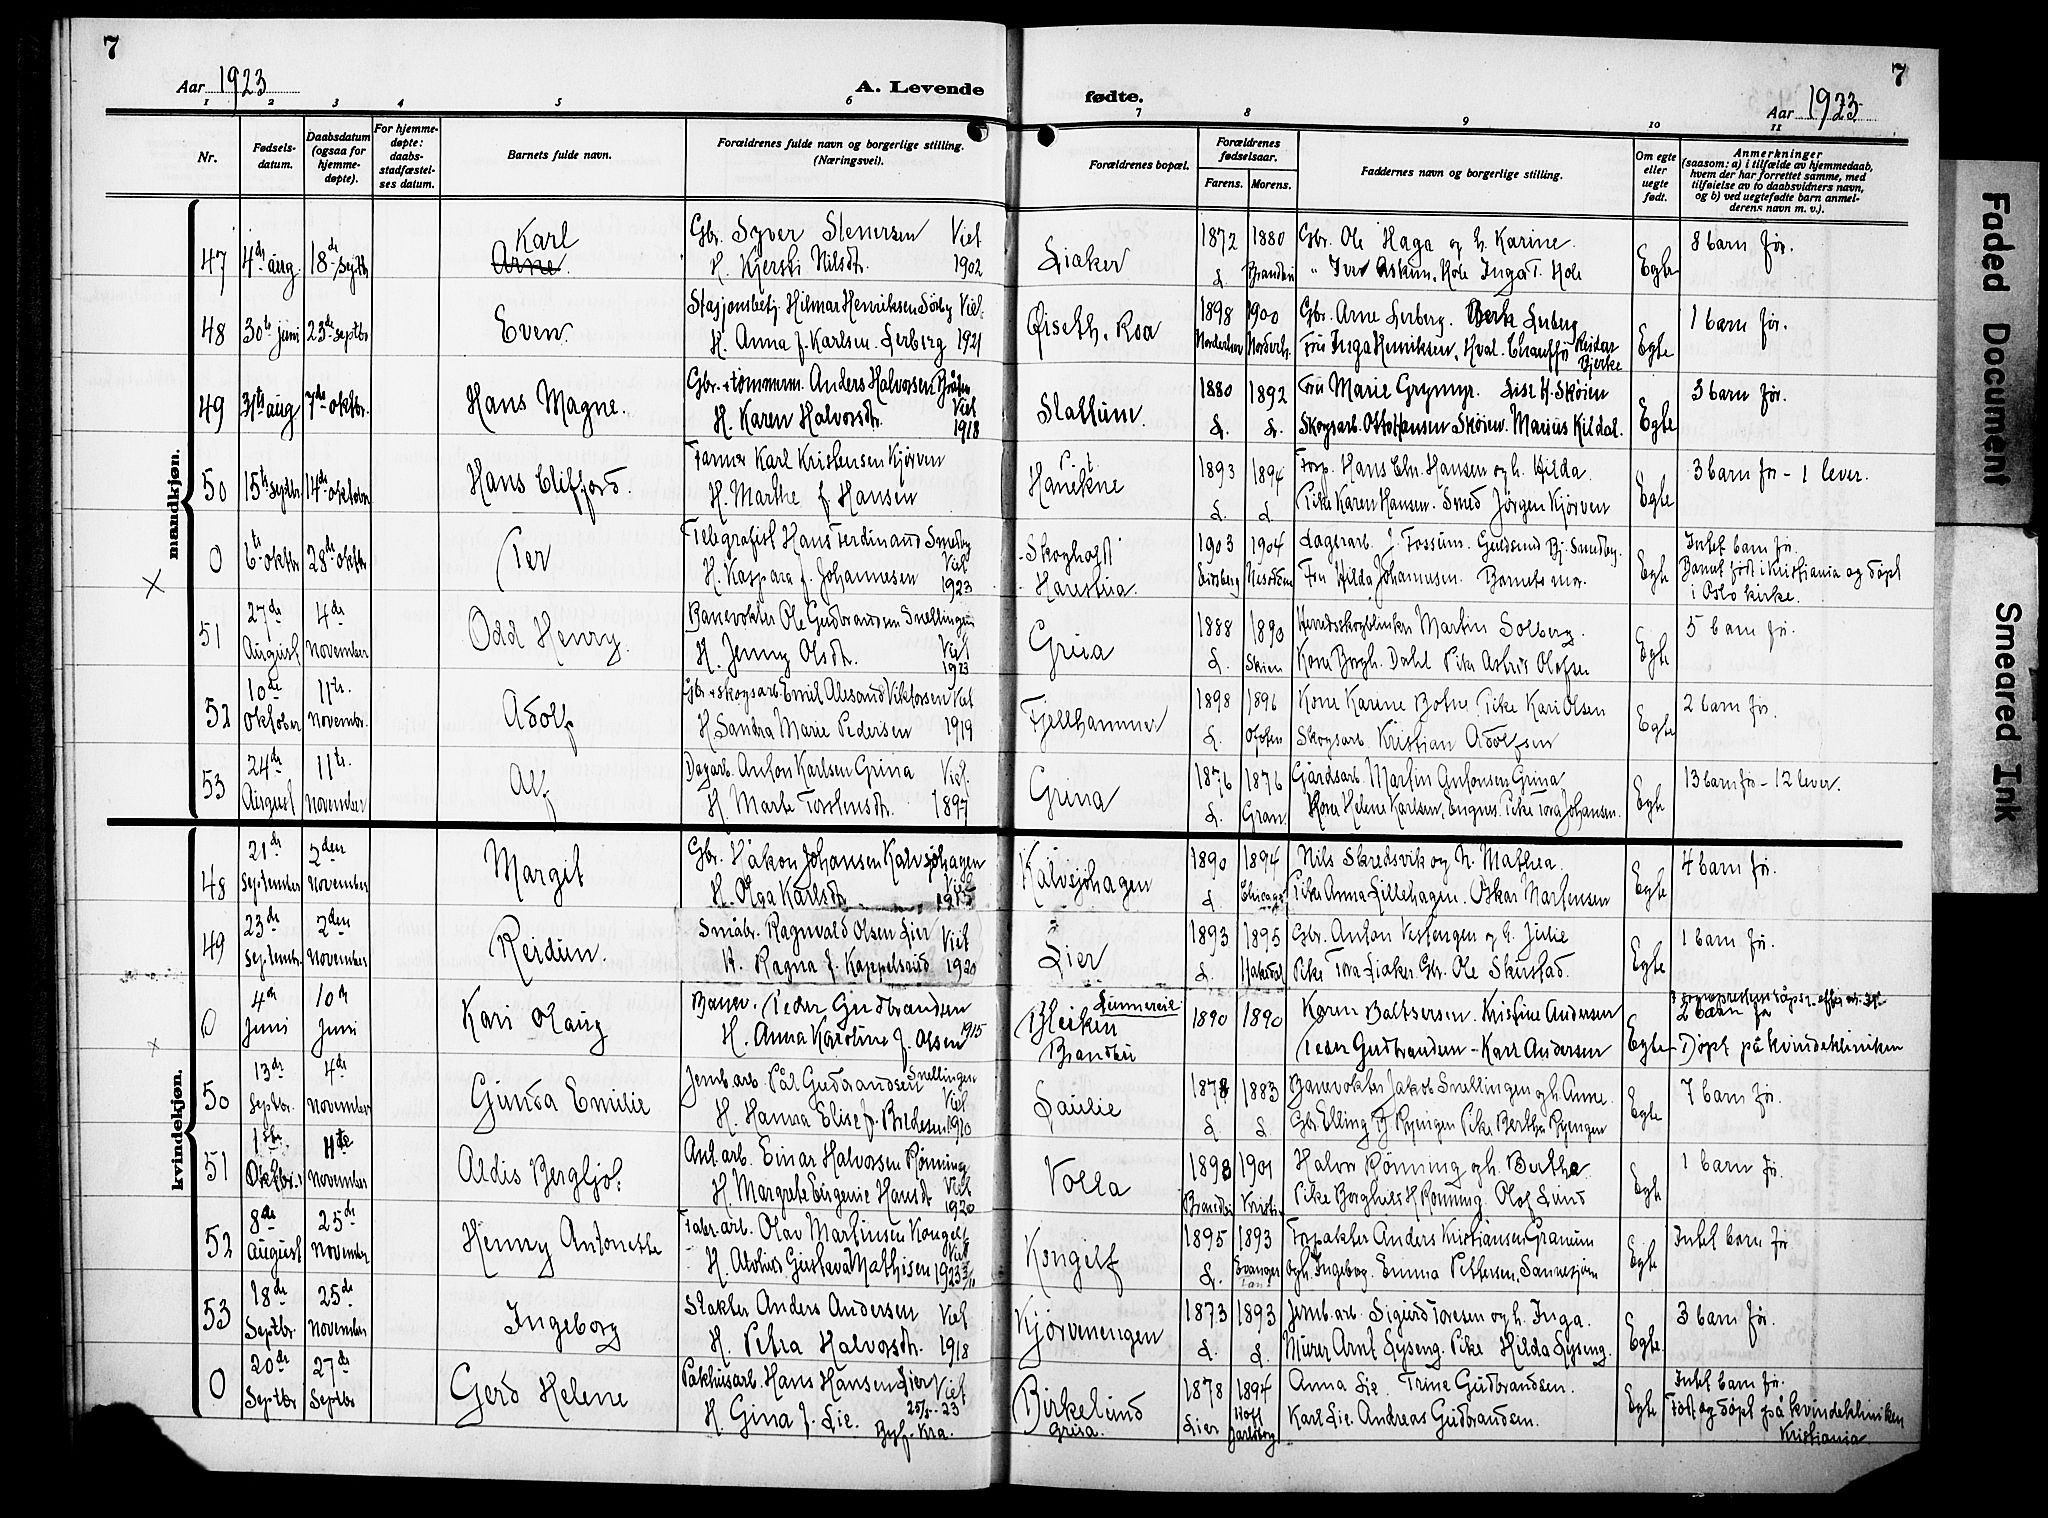 7
Aar 1923
A. Levende
fødte.
Aar 1923.
7
1 2 3 4 5 6 7 8 9 10 11
Nr.
Fødsels-
datum.
Daabsdatum
(ogsaa for
hjemme-
døpte).
For hjemme-
døpte:
daabs-
stadfæstel-
ses datum.
Barnets fulde navn.
Forældrenes fulde navn og borgerlige stilling.
(Næringsvei).
Forældrenes bopæl.
Forældrenes
fødselsaar.
Farens. Morens.
Faddernes navn og borgerlige stilling.
Om egte
eller
uegte
født.
Anmerkninger
(saasom: a) i tilfælde av hjemmedaab,
hvem der har forrettet samme, med
tilføielse av to daabsvidners navn,
og b) ved uegtefødte barn anmel-
derens navn m. v.).
mandkjøn.
47 4de aug 18de septbr Karl Arne. Gbr. Syver Stenersen Viet 1902
H. Kjersti Nilsdtr.
Liaker 1872 L. 1880 Brandbu
Gbr. Ole Haga og h. Karine.
" Iver Askim. Hole Inga T. Hole
Egte 8 barn før.
48 30te juni 23de septbr Even. Stasjonsbetj. Hilmar Henriksen Sørby Viet.
H. Anna f. Karlsen Lerberg 1921
Øiseth. Roa 1898 1900
Gbr. Arne Lerberg. Lerberg
Fru Inga Henriksen, Hval. Chauffø Reidar Bjerke
Egte 1 barn før.
49 31te aug 7de oktbr. Hans Magne. Gbr. + tømmerm. Anders Halvorsen
H. Karen Halvorsdtr. Viet 1918
Slattum. 1880 L. 1892 L.
Fru Marie Grymyr. Lise H. Skøien
Skogsarb. Otto Hansen Skøien. Marius Kildal.
Egte 3 barn før.
50 15te septbr 14de oktober Hans Cliffjord. Farmer Karl Kristensen Kjørven
H. Marthe f. Hansen
P.t. Hanekne 1893 L. 1894 L
Forp. Hans Chr. Hansen og h. Hilda.
Pike Karen Hansen. Smed Jørgen Kjørven
Egte 3 barn før - 1 lever.
0 6te oktbr 28de oktbr Per Telegrafist Hans Ferdinand Smedby Viet
H. Kaspara f. Johannesen 1923
Skogholdt
Harestua 1903 1904 Nesodden
Lagerarb. J. Fossum. Guldsmed Bj. Smedby.
Fru Hilda Johannesen. Barnets mor.
Egte Intet barn før.
Barnet født i Kristiania og døpt
i Oslo kirke.
51 27de August 4de November Odd Henry. Banevokter Ole Gudbrandsen Snellingen
H. Jenny Olsdtr. Viet 1923
Grua 1888 L. 1890 Skien
Herredsskogblinker Martin Solberg.
Kone Borgh. Dahl Pike Astrid Olofsen
Egte 5 barn før.
52 10de Oktober 11te Novembr. Adolf Gbr + skogsarb. Emil Alesand Viktorsen Viet
H Sandra Marie Pedersen 1919
Fjellhammer 1898 L. 1896 Ofoten
Kone Karine Botne. Pike Kari Olsen
Skogsarb. Kristian Adolfsen
Egte 2 barn før.
53 24de August 11te November Alf Dagarb. Anton Karlsen Grina Viet.
H. Marte Torstensdtr. 1897
Grina 1876 L. 1876 Gran
Gårdsarb. Martin Antonsen Grina
Kone Helene Karlsen, Engnes. Pike Tora Johansen.
Egte 13 barn før - 12 lever.
kvindekjøn.
48 21de September 2den November Margit Gbr. Håkon Johansen Kalvsjøhagen
H. Olga Karlsdtr Viet 1915
Kalvsjøhagen 1890 L 1894 Chicago
Nils Skredsvik og h. Mathea.
Pike Anna Lillehagen. Oskar Martensen
Egte 4 barn før.
49 23de Septembr. 2den November Reidun. Småbr. Ragnvald Olsen Lier Viet
H. Ragna f. Kappelsrud 1920
Lier 1893 L. 1895 Hakedal
Gbr. Anton Vestengen og h. Julie
Pike Tora Liaker. Gbr. Ole Skirstad.
Egte 1 barn før.
0 4de Juni 10de Juni Kari Olaug Banev. Peder Gudbrandsen
H. Anna Karoline f. Olsen 1915
Lunnereie
Bleiken
Brandbu 1890 1890
Karen Baltsersen. Kristine Andersen
Peder Gudbrandsen - Karl Andersen
Egte 2 barn før
Døpt på kvindekliniken
50 13de Septbr. 4de November Gunda Emilie Jernb. arb. Pål Gudbrandsen Snellingen
H. Hanna Elise f. Bredesen Viet 1910
Paulie 1878 L 1883 L
Banevokter Jakob Snellingen og h. Anne.
Gbr Elling Pike Bertha Ryengen
Egte 7 barn før.
51 1ste Oktbr. 4te November Aldis Bergljot Anl. arb. Einar Halvorsen Rønning
H. Margrete Eugenie Hansd. Viet 1920
Volla 1898 Brandbu 1901 Kristia
Halvor Rønning og h. Bertha
Pike Borghild H Rønning. Olof Lund
Egte 1 barn før.
52 8de August 25de November Henny Antonette Fabr. arb. Olav Martinsen Kongelf
H. Alvhild Gustava Mathisen Viet 1923
Kongelf 1895 L. 1893
Forpakter Anders Kristiansen Granum
og h. Ingeborg. Emma Pettersen, Sannesjøen
Egte Intet barn før
53 18de Septbr. 25de November Ingeborg Slakter Anders Andersen Viet
H. Petra Halvorsdtr. 1918
Kjørvenengen 1873 L. 1893 L.
Jernb. arb. Sigurd Toresen og h. Inga.
Murer Arnt Lyseng. Pike Hilda Lyseng.
Egte 3 barn før.
0 20de Septbr 27de Septbr Gerd Helene Pakhusarb. Hans Hansen Lier Viet
H. Gina f. Lie. 25/5-23
Byf. Kra.
Birkelund
Grua 1878 Lier 1894 Hoff Jarlsberg
Anna Lie. Trine Gudbrandsen.
Karl Lie. Andreas Gudbrandsen.
Egte Intet barn før.
Født og døpt på kvindekliniken
Kristiania
Faded Document
Smeared Ink